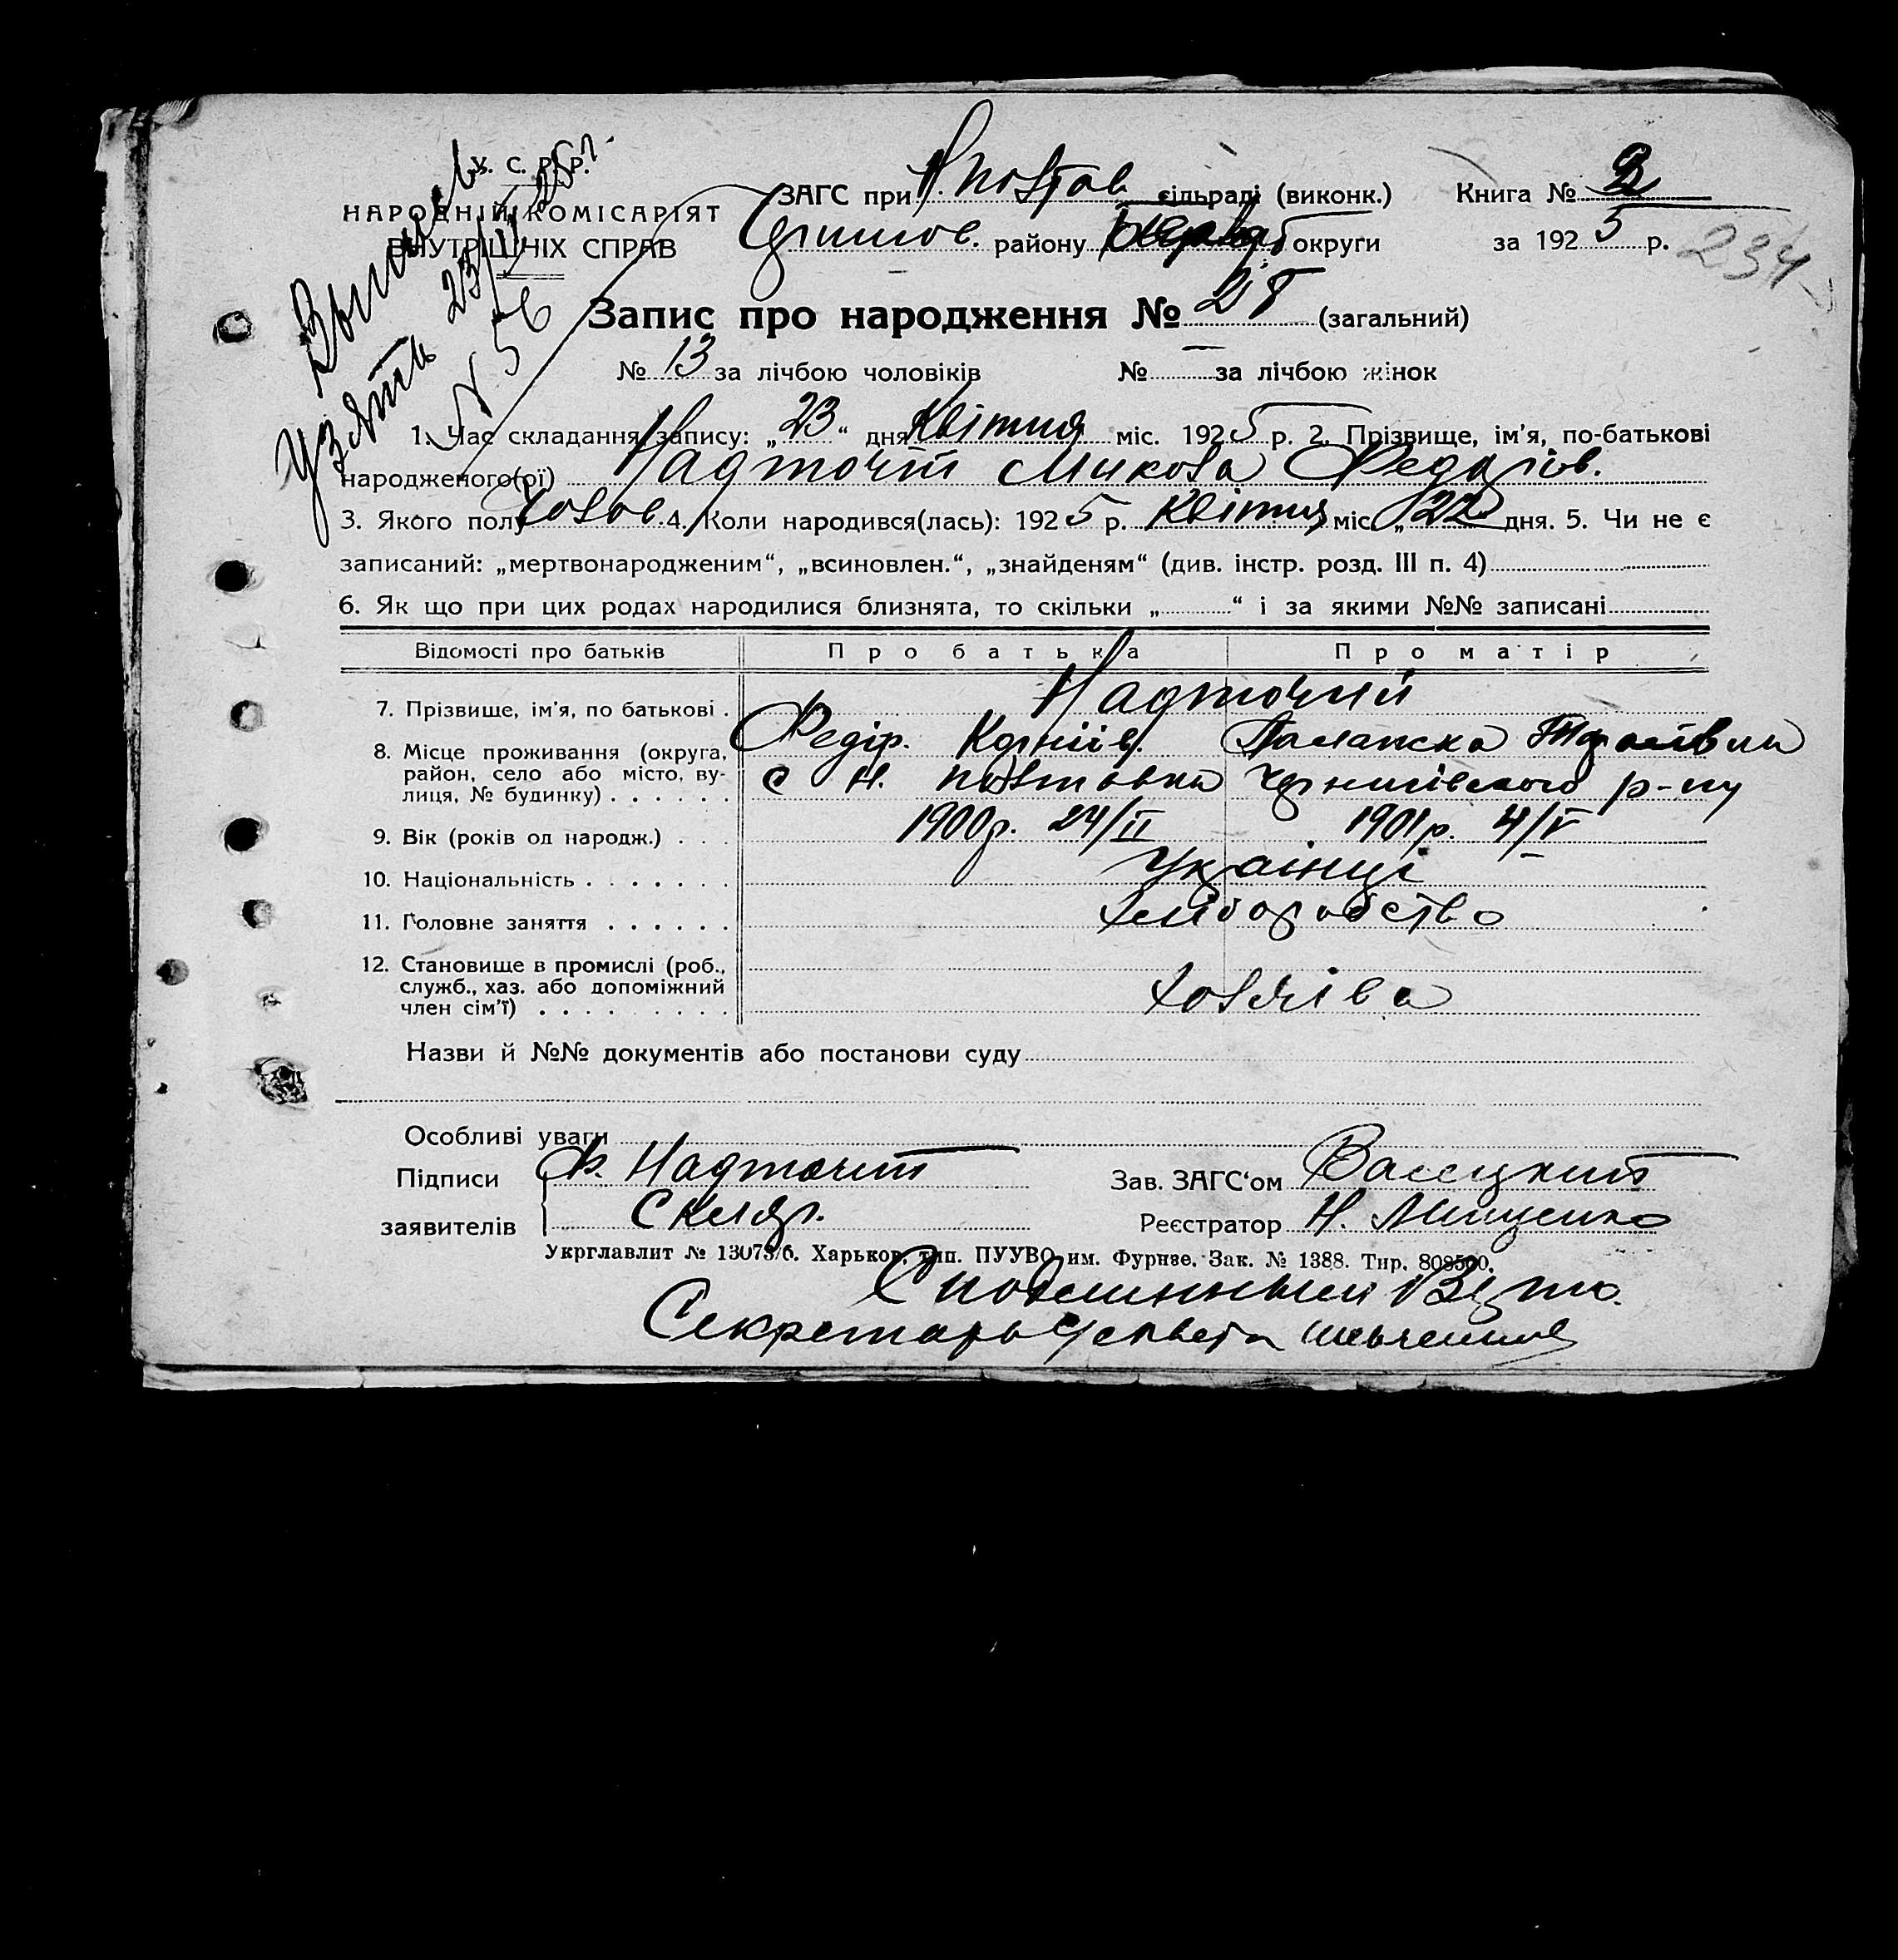 У. С. Р. Р.
НАРОДНІЙ КОМІСАРІЯТ
ВНУТРІШНІХ СПРАВ
узята 23/IV 25 р.
N 56
ЗАГС при Н. Полтав. сільраді (виконк.) Книга № 2
району округи за 1925 р. 234
Запис про народження № 28 (загальний)
№ 13 за лічбою чоловіків № — за лічбою жінок
1. Час складання запису: „23“ дня Квітня міс. 1925 р. 2. Прізвище, ім'я, по-батькові
народженого(ої) Надточій Микола Федорів.
3. Якого полу чолов. 4. Коли народився(лась): 1925 р. Квітня міс. „22 дня. 5. Чи не є
записаний: „мертвонародженим“, „всиновлен.“, „знайденям“ (див. інстр. розд. III п. 4)
6. Як що при цих родах народилися близнята, то скільки „ “ і за якими №№ записані
Відомості про батьків Про батька Про матір
7. Прізвище, ім'я, по батькові . Надточий
Федір. Корніїв. Палажка
8. Місце проживання (округа, район, село або місто, вулиця, № будинку) . . . . . . с Н. Полтавка Чернигівського р-ну
9. Вік (років од народж.) . . . 1900 р. 24/II 1901 р. 4/V
10. Національність . . . . . . . Українці
11. Головне заняття . . . . . . хліборобство
12. Становище в промислі (роб., служб., хаз. або допоміжний член сім'ї) . . . . . . . . . хозяїва
Назви й №№ документів або постанови суду
Особливі уваги
Підписи Ф. Надточий Зав. ЗАГС'ом Васецкий
заявителів Скляр. Реєстратор Н. Мищенко
Укрглавлит № 13073/6. Харьков, тип. ПУУВО им. Фрунзе. Зак. № 1388. Тир. 808500.
С подлинным верно.
Секретарь